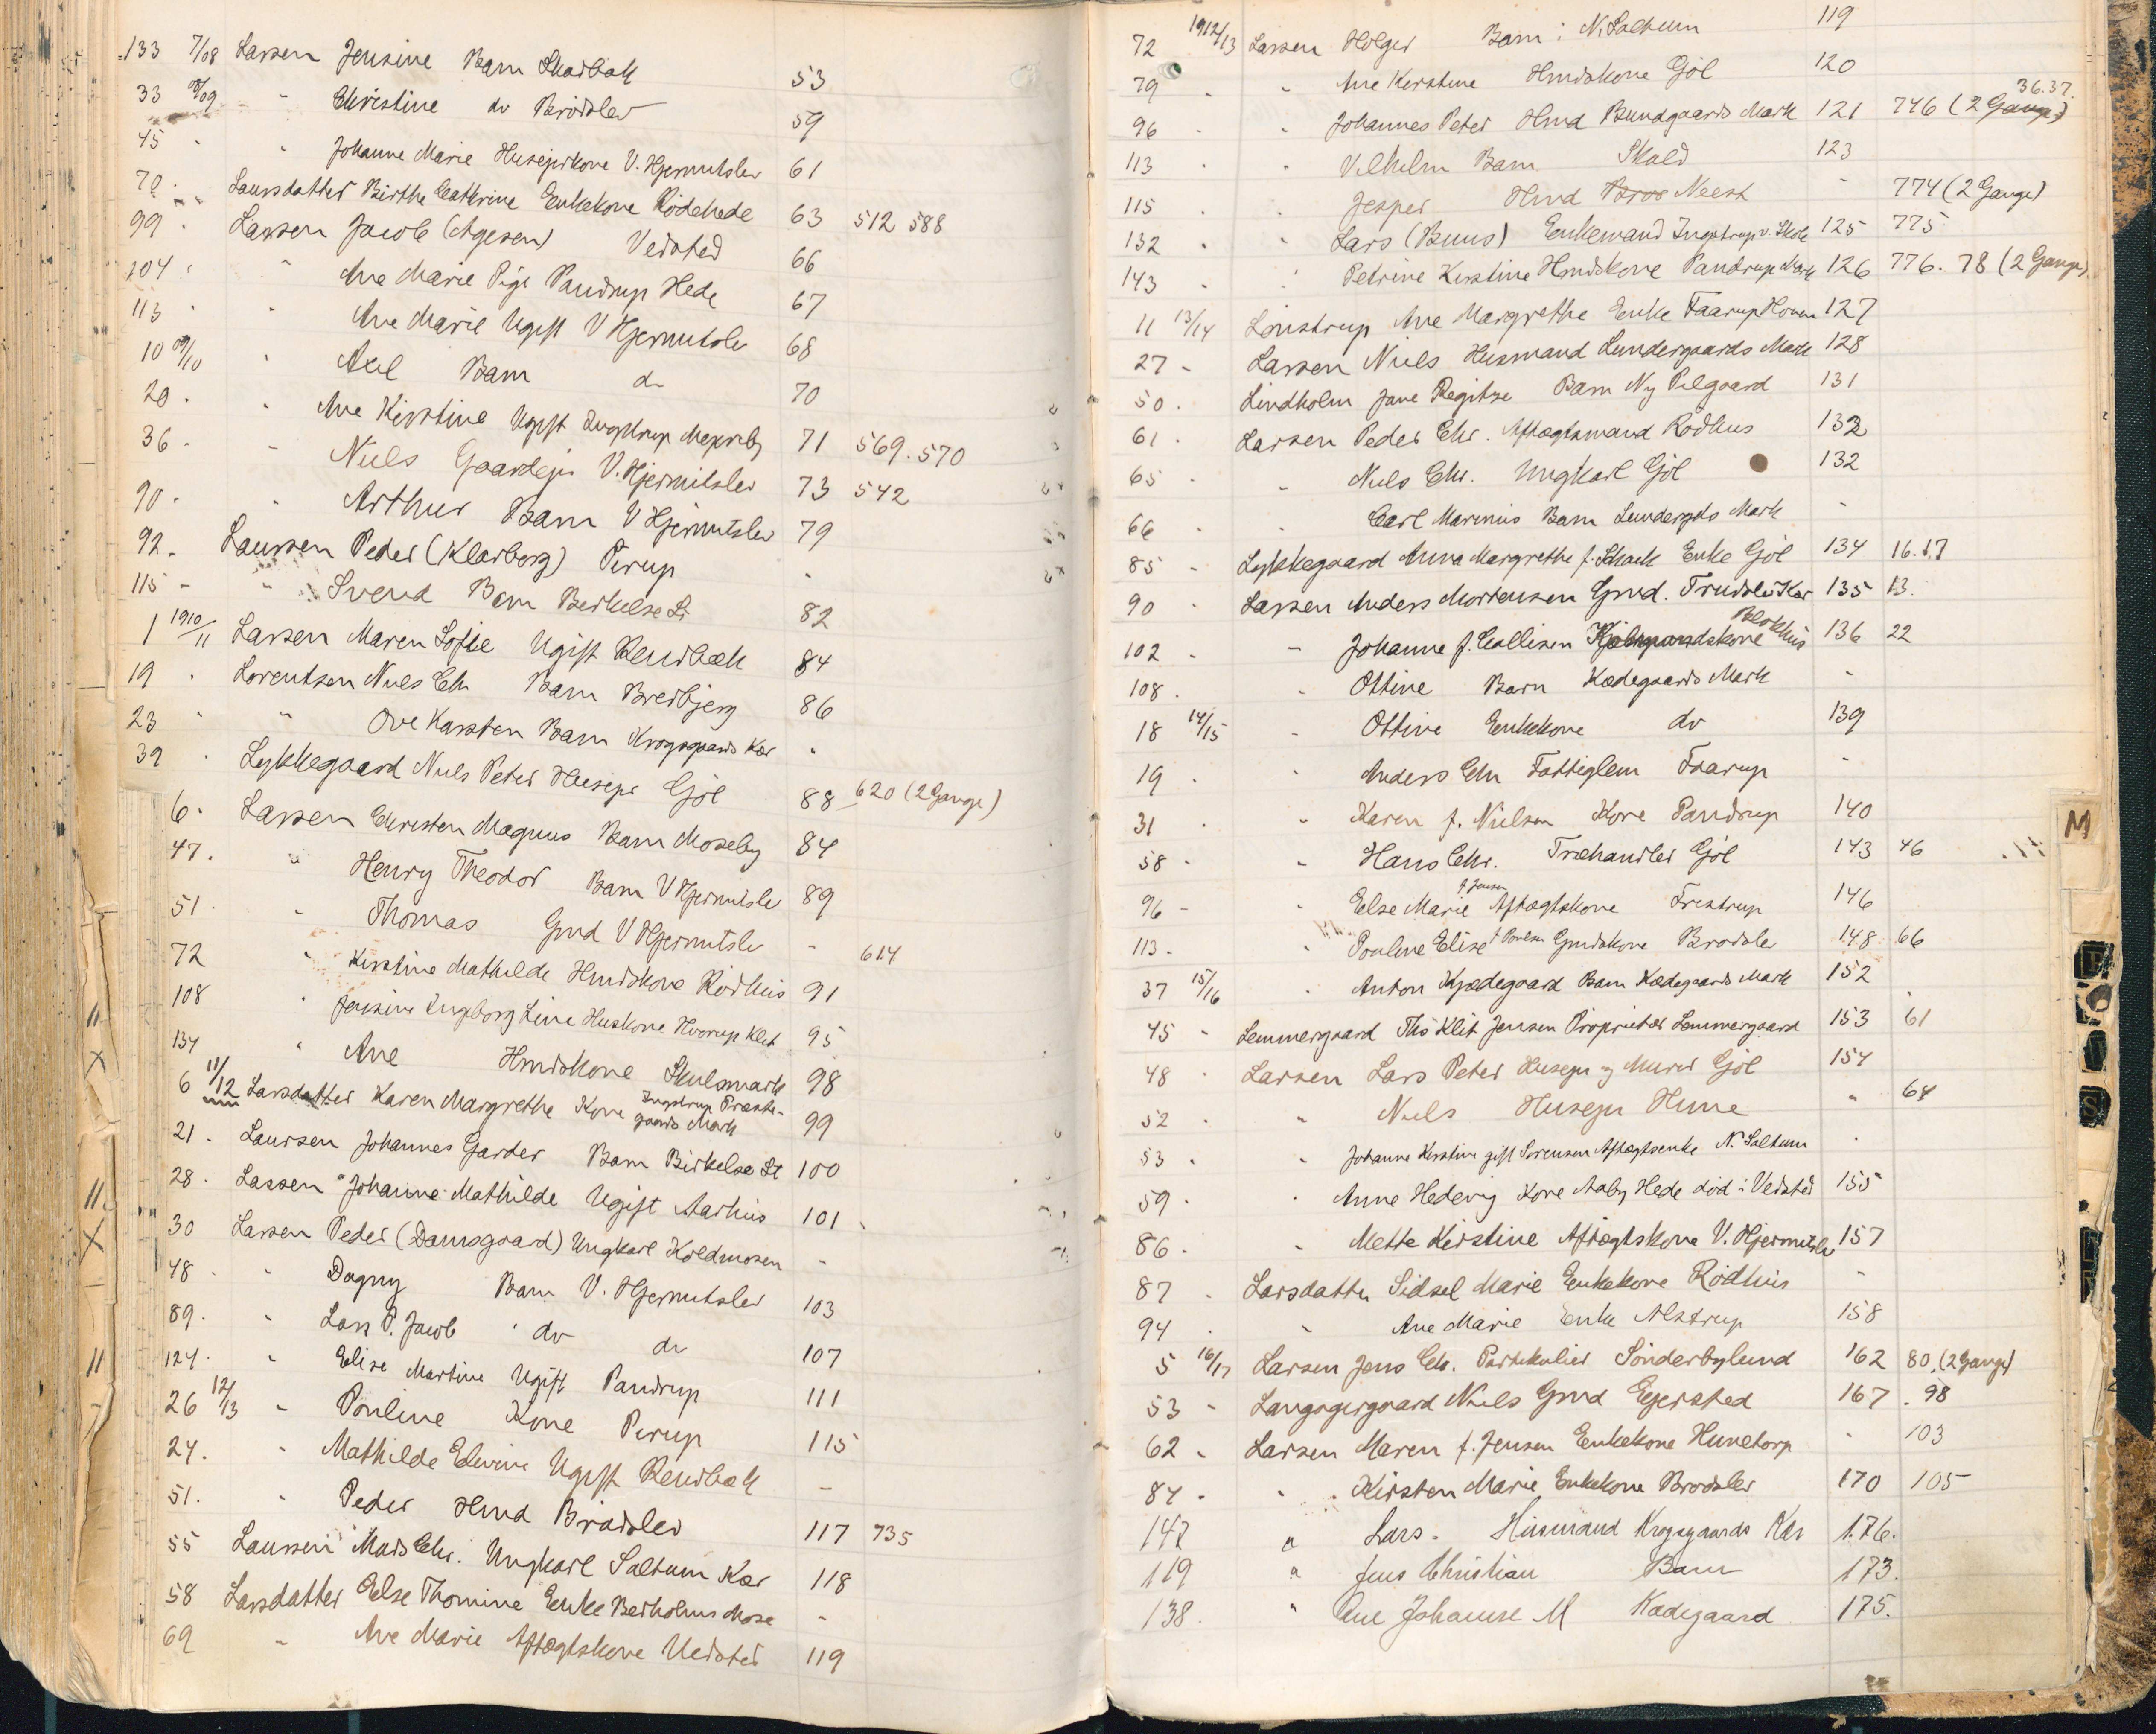 133 7/08 Larsen Jensine Barn Skarbak 53
33 08/09 " Christine do Brødslev 59
45 " " Johanne Marie Husejerkone V. Hjermitslev 61
70 " Laursdatter Birthe Cathrine Enkekone Rødehede 63 512 588
99 " Larsen Jacob (Agesen) Vedsted 66
104 " " Ane Marie Pige Pandrup Hede 67
113 " " Ane Marie Ugift V Hjermitslev 68
10 09/10 " Axel Barn do 70
20 " " Ane Kirstine Ugift Ingstrup Mejeriby 71 569.570
36 " " Niels Gaardejer V. Hjermitslev 73 542
90 " " Arthur Barn V Hjermitslev 79
92 " Laursen Peder (Klarborg) Pirup "
115 " " Svend Barn Birkelse St 82
1 1910/11 Larsen Maren Sofie Ugift Rendbæk 84
19 " Lorentsen Niels Chr Barn Bredbjerg 86
23 " " Ove Karsten Barn Krogsgaards Kær "
39 " Lykkegaard Niels Peter Husejer Gjøl 88 620 (2 Gange)
6 " Larsen Christen Magnus Barn Moseby 84
47 " " Henry Theodor Barn V Hjermitslev 89
51 " " Thomas Gmd V Hjermitslev " 614
72 " Kirstine Mathilde Hmdskone Rødhus 91
108 " Jensine Ingeborg Line Huskone Hvorup Klit 95
134 " Ane Hmdskone Skulsmark 98
6 11/12 Larsdatter Karen Margrethe Kone Ingstrup Præste-
gaards Mark 99
21 " Laursen Johannes Garder Barn Birkelse St 100
28 " Lassen Johanne Mathilde Ugift Aarhus 101
30 Larsen Peder (Damsgaard) Ungkarl Koldmosen "
48 " " Dagny Barn V. Hjermitslev 103
89 " " Lars P. Jacob do do 107
124 " " Elise Martine Ugift Pandrup 111
26 12/13 " Pouline Kone Pirup 115
24 " " Mathilde Elvine Ugift Rendbæk "
51 " " Peder Hmd Brødslev 117 735
55 Laursen Mads Chr. Ungkarl Saltum Kær 118
58 Larsdatter Else Thomine Enke Berholms Mose "
69 " Ane Marie Aftægtskone Vedsted 119
72 1912/13 Larsen Holger Barn i N. Saltum 119
79 " " Ane Kirstine Hmdskone Gjöl 120
36.37.
96 " " Johannes Peter Hmd Bundgaards Mark 121 746 (2 Gange)
113 " " Vilhelm Barn Skald 123
115 " " Jesper Hmd Bros Neest " 774 (2 Gange)
132 " " Lars (Buus) Enkemand Ingstrup v. Skole 125 775
143 " " Petrine Kirstine Hmdskone Pandrup Mark 126 776. 78 (2 Gange)
11 13/14 Lönstrup Ane Margrethe Enke Faarup Houen 127
27 " Larsen Niels Husmand Lundergaards Mark 128
50 " Lindholm Jane Regitze Barn Ny Pilgaard 131
61 " Larsen Peder Chr. Aftægtsmand Rödhus 132
65 " " Niels Chr. Ungkarl Gjöl 132
66 " " Carl Marinus Barn Lundergds Mark "
85 " Lykkegaard Anna Margrethe f. Schack Enke Gjöl 134 16.17
90 " Larsen Anders Mortensen Gmd. Trudslev Kær 135 13.
102 " " Johanne f. Callisen Kjøbmandskone Blokhus 136 22
108 " " Ottine Barn Kædegaards Mark "
18 14/15 " Ottine Enkekone do 139
19 " " Anders Chr Fattiglem Faarup "
31 " " Karen f. Nielsen Kone Pandrup 140
58 " " Hans Chr. Træhandler Gjöl 143 46
96 " " Else Marie f Jensen Aftægtskone Fristrup 146
113 " " Pouline Elise f Poulsen Gmdskone Brødslev 148 66
37 15/16 " Anton Kjædegaard Barn Kædegaards Mark 152
45 " Lemmergaard Ths Klit Jensen Proprietær Lemmergaard 153 61
48 " Larsen Lars Peter Husejer og Murer Gjöl 154
52 " " Niels Husejer Hune " 64
53 " " Johanne Kirstine gift Sörensen Aftægtsenke N. Saltum "
59 " " Anne Hedevig Kone Aaby Hede död i Vedsted 155
86 " " Mette Kirstine Aftægtskone V. Hjermitslev 157
87 " Larsdatter Sidsel Marie Enkekone Rödhus "
94 " " Ane Marie Enke Alstrup 158
5 16/17 Larsen Jens Chr. Partikulier Sönderbylund 162 80. (2 Gange)
53 " Langagergaard Niels Gmd Ejersted 167 . 98
62 " Larsen Maren f. Jensen Enkekone Hunetorp " 103
84 " " Kirsten Marie Enkekone Brødslev 170 105
147 " Lars. Husmand Krogsgaards Kær 176.
119 " Jens Christian Barn 173.
138. " Ane Johanne M Kædegaard 175.
M